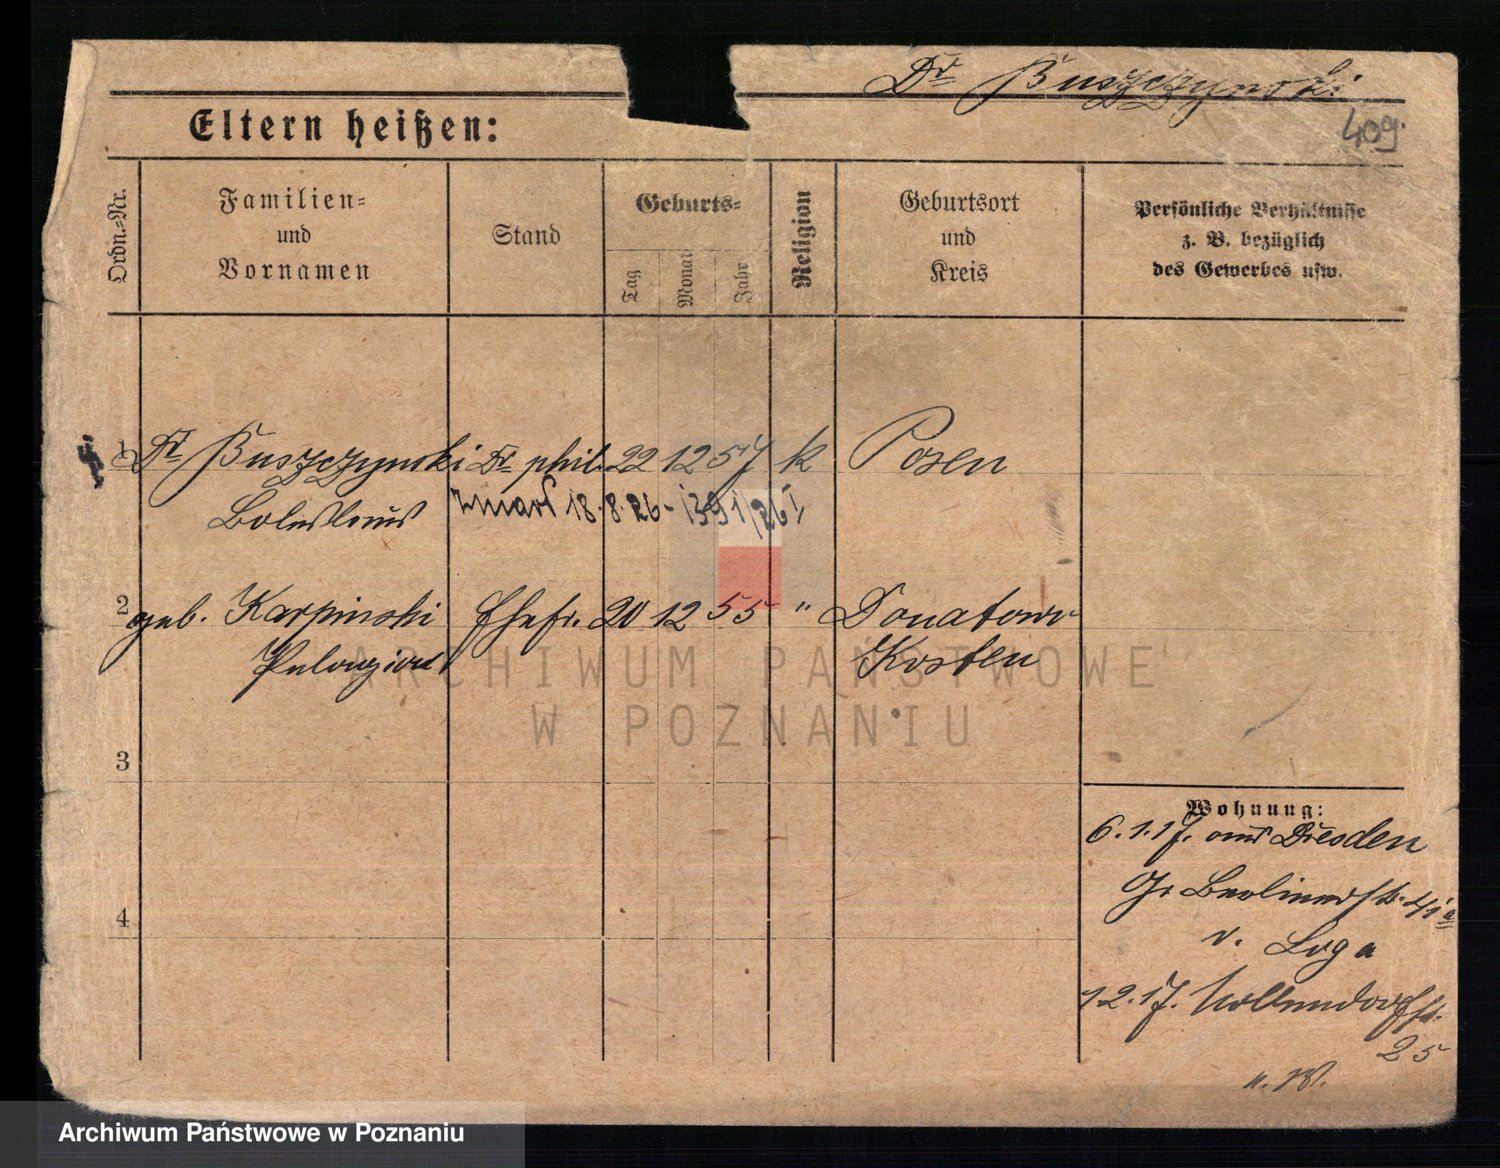 Dr Buszczynski
409.
Eltern heißen:
Ordn.-Nr.
Familien-
und
Vornamen
Stand
Geburts-
Tag
Monat
Jahr
Religion
Geburtsort
und
Kreis
Persönliche Verhältnisse
z. B. bezüglich
des Gewerbes usw.
1 Dr Buszczynski Dr phil. 22 12 57 k Posen
Boleslaus zmarł 18.8.26 - 1391/26 I
2 geb. Karpinski Ehefr. 20 12 55 " Donatowo
Pelangia Kosten
3
4
Wohnung:
6.1.17. aus Dresden
Gr Berlinerstr. 41a
v. Loga
1.2.17. Nollendorfstr.
25
n. W.
ARCHIWUM PAŃSTWOWE
W POZNANIU
Archiwum Państwowe w Poznaniu